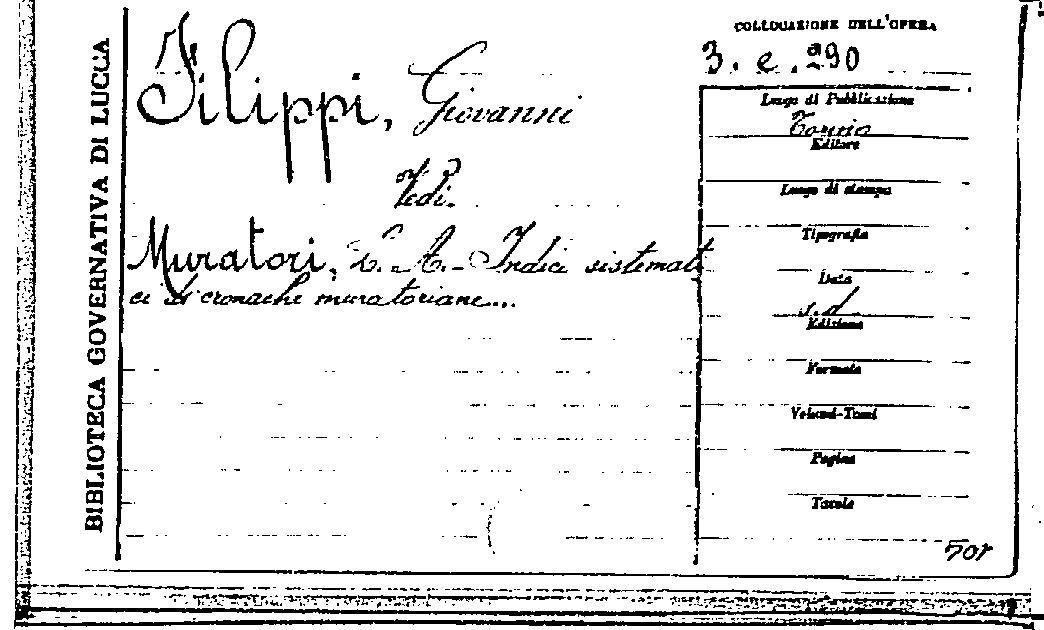 BIBLIOTECA GOVERNATIVA DI LUCCA
Filippi, Giovanni
Vedi.
Muratori, L. A. - Indici sistemati
ci di cronache muratoriane...
COLLOCAZIONE DELL'OPERA
3. e. 290
Luogo di Pubblicazione
Torino
Editore
Luogo di stampa
Tipografia
Data
s. d
Edizione
Formato
Volumi-Tomi
Pagine
Tavole